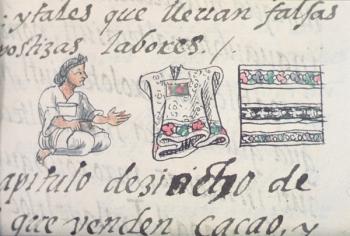 : y tales que lleuan falsas
postizas labores. /
apitulo dezinocho de
que venden cacao, y